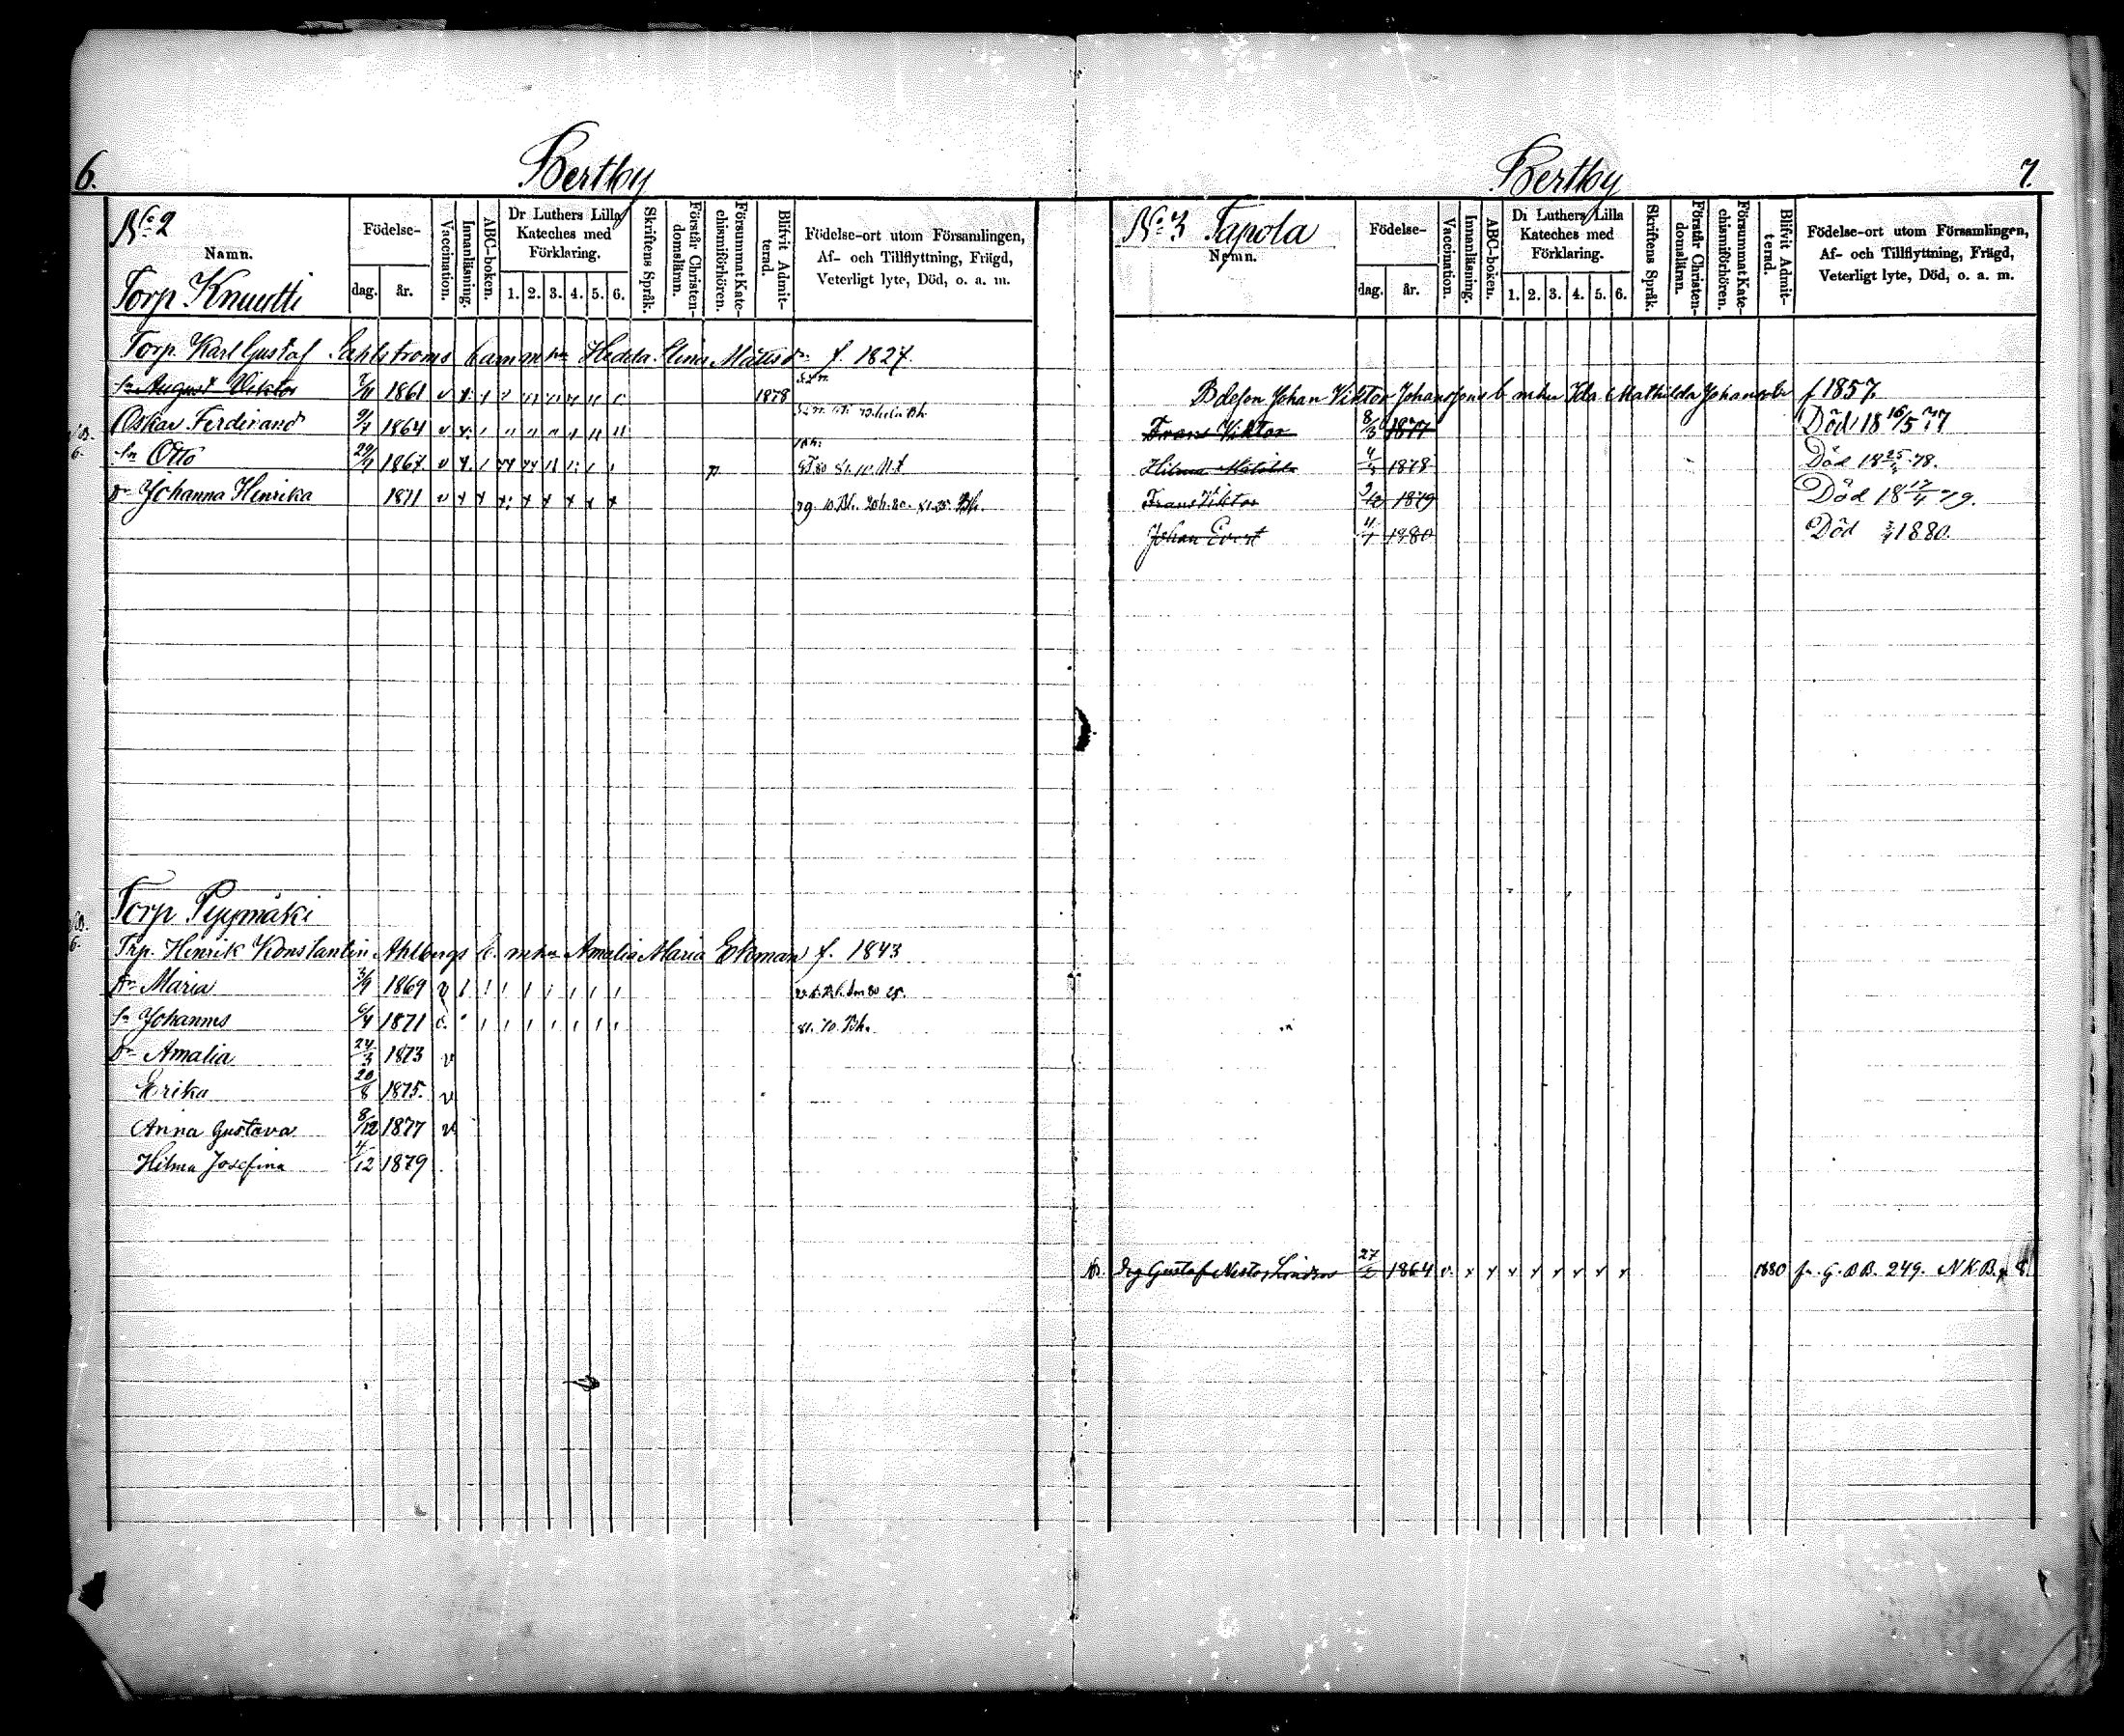 6.
Bertby
No 2
Namn.
Födelse-
dag.
år.
Vaccination.
Innanläsning.
ABC-boken.
Dr Luthers Lilla Kateches med Förklaring.
1. 2. 3. 4. 5. 6.
Skriftens Språk.
Förstår Christendomslärän.
Försummat Katechismiförhören.
Blifvit Admitterad.
Födelse-ort utom Församlingen,
Af- och Tillflyttning, Frägd,
Veterligt lyte, Död, o. a. m.
Torp Knuutti
Torp. Karl Gustaf Sahlstroms barn m hu Hedda Stina Mattsdr f. 1827.
Sn August Viktor 1861 1878
Oskar Ferdinand 1864
Sn Otto 29/ 1867
Dr Johanna Henrika 1871
Torp Pyymäki
Trp. Henrik Konstantin Ahlbergs b. m hu Amalia Maria Ekman f. 1843
Dr Maria 1869
Sn Johannes 6/4 1871
Dr Amalia 24/3 1873 v
Erika 20/8 1875. v
Anna Gustava 8/12 1877 v
Hilma Josefina 4/12 1879
7.
Bertby
No 3 Tapola
Namn.
Födelse-
dag.
år.
Vaccination.
Innanläsning.
ABC-boken.
Dr Luthers Lilla Kateches med Förklaring.
1. 2. 3. 4. 5. 6.
Skriftens Språk.
Förstår Christendomslärän.
Försummat Katechismiförhören.
Blifvit Admitterad.
Födelse-ort utom Församlingen,
Af- och Tillflyttning, Frägd,
Veterligt lyte, Död, o. a. m.
Johan Viktor Johanssons b m hu Ida Mathilda Johansdr f 1857
Frans Viktor 8/3 1877 Död 18 16/5 77
Hilma Matilda 1878 Död 18 78.
Frans Viktor 1879 Död 18 79.
Johan Evert 4/1 1880 Död 1880.
Drg Gustaf Nestor Lindroos 27/2 1864 v. 1880 fr. G. B B. 249. N K B. p 8